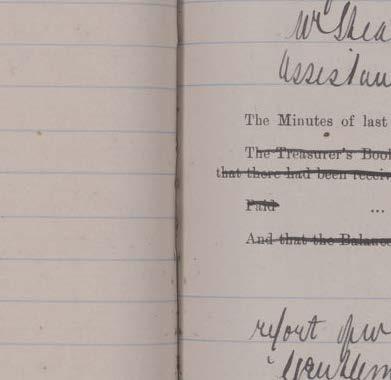 Mr Shea
Assistan
The Minutes of last
The Treasurer's Book
that there had been receiv
Paid ...
And that the Balance
report
Gentlem